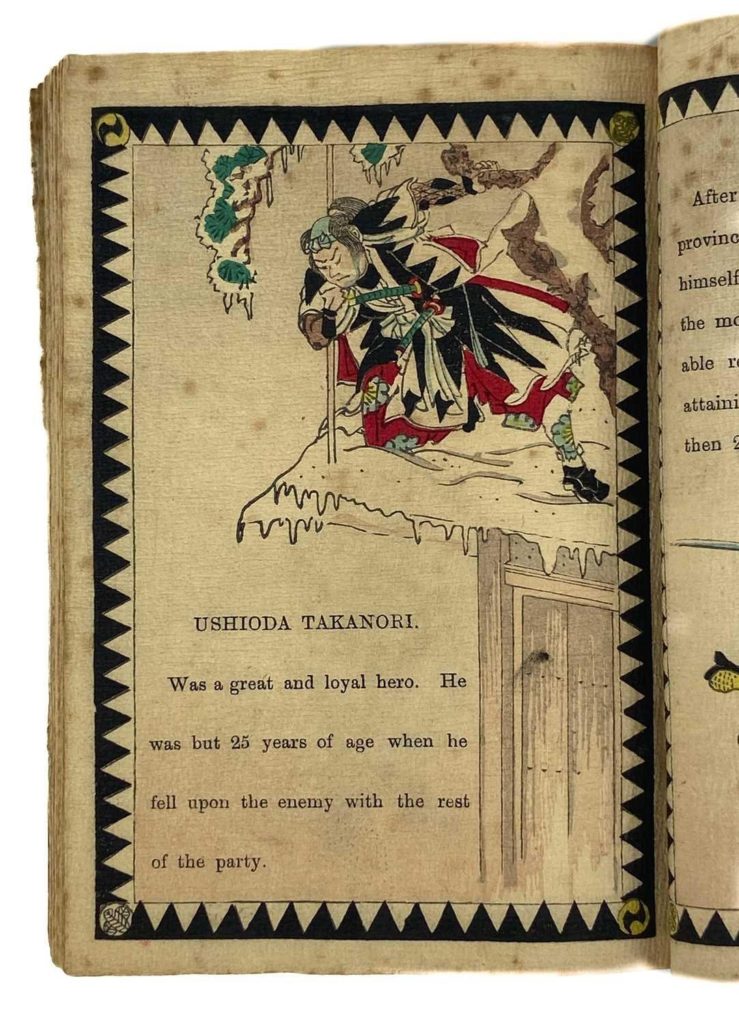 USHIODA TAKANORI.
Was a great and loyal hero. He
was but 25 years of age when he
fell upon the enemy with the rest
of the party.
After
himself
the
able
then